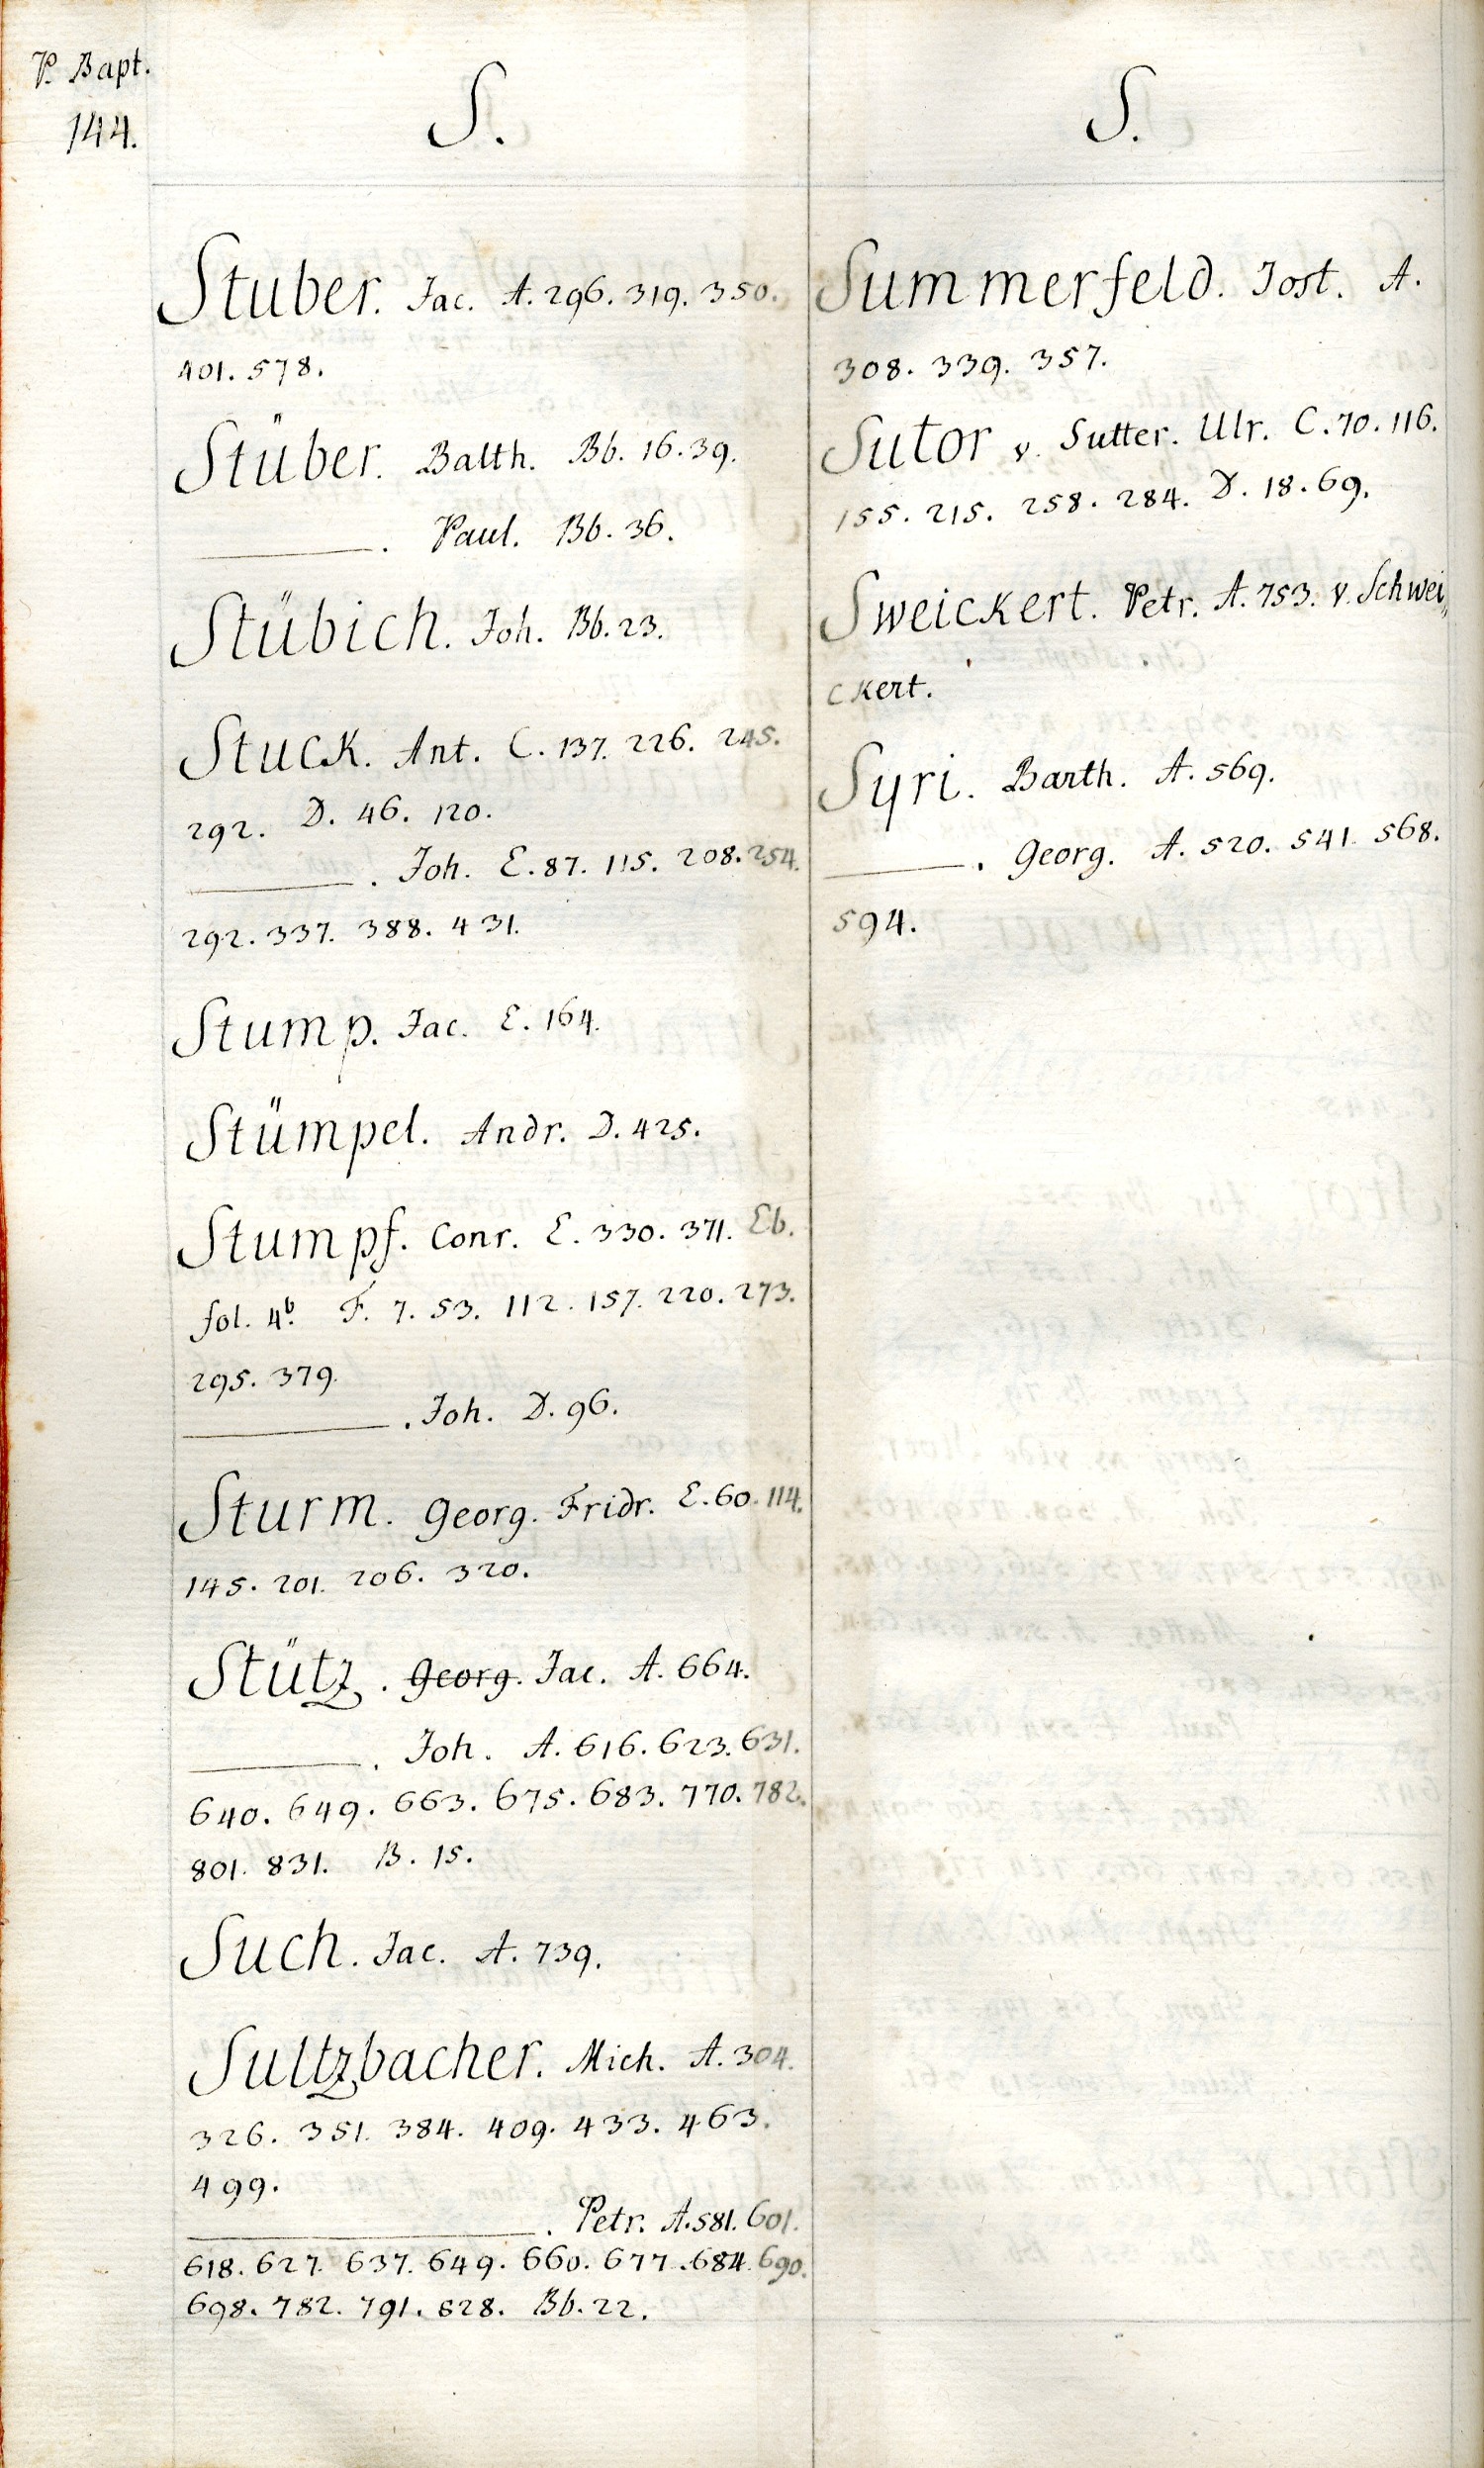 P. Bapt.
144.
S.
Stuber. Jac. A. 296. 319. 350.
401. 578.
Stüber. Balth. Bb. 16. 39.
———. Paul. Bb. 36.
Stübich. Joh. Bb. 23.
Stuck. Ant. C. 137. 226. 245.
292. D. 46. 120.
———. Joh. E. 87. 115. 208. 254.
292. 337. 388. 431.
Stump. Jac. E. 164.
Stümpel. Andr. D. 425.
Stumpf. Conr. E. 330. 371. Eb.
fol. 4b. F. 7. 53. 112. 157. 220. 273.
295. 379.
———. Joh. D. 96.
Sturm. Georg. Fridr. E. 60. 114.
145. 201. 206. 320.
Stütz. Georg. Jac. A. 664.
———. Joh. A. 616. 623. 631.
640. 649. 663. 675. 683. 770. 782.
801. 831. B. 15.
Such. Jac. A. 739.
Sultzbacher. Mich. A. 304.
326. 351. 384. 409. 433. 463.
499.
———. Petr. A. 581. 601.
618. 627. 637. 649. 660. 677. 684. 690.
698. 782. 791. 828. Bb. 22.
S.
Summerfeld. Jost. A.
308. 339. 357.
Sutor v. Sutter. Ulr. C. 70. 116.
155. 215. 258. 284. D. 18. 69.
Sweickert. Petr. A. 753. v. Schwei„
ckert.
Syri. Barth. A. 569.
———. Georg. A. 520. 541. 568.
594.